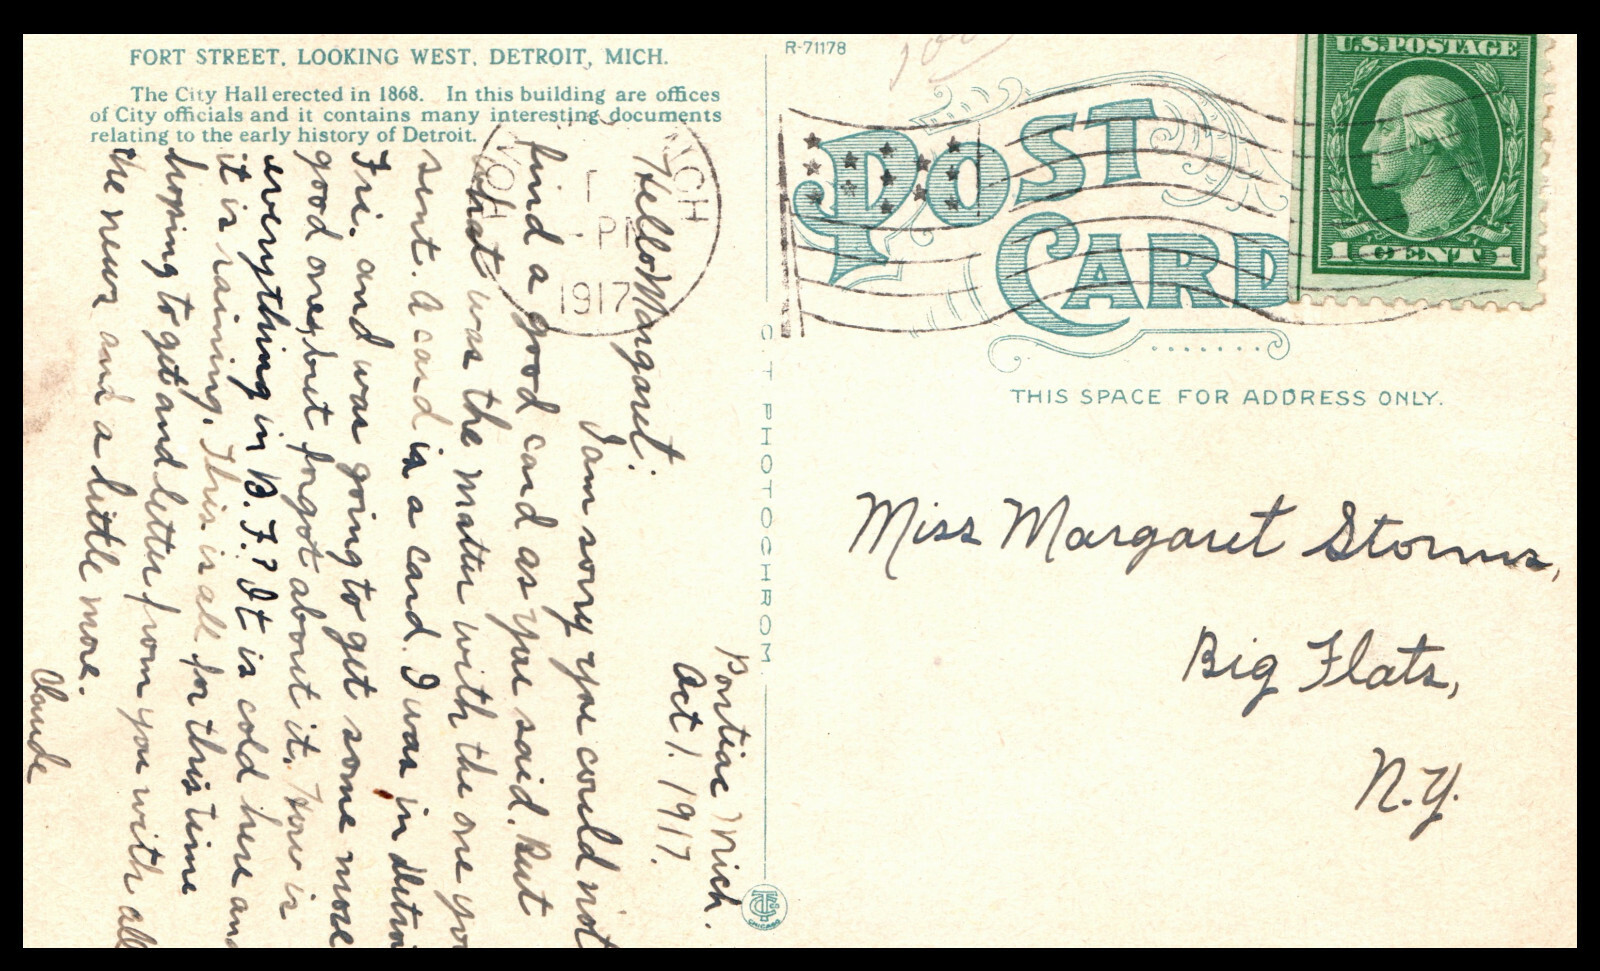 FORT STREET, LOOKING WEST, DETROIT, MICH.
The City Hall erected in 1868. In this building are offices
of City officials and it contains many interesting documents
relating to the early history of Detroit.
Pontiac Mich.
Oct 1. 1917.
Hello Margaret:
I am sorry you could not
find a good card as you said. But
what was the matter with the one you
sent. A card is a card. I was in Detroi
Fri. and was going to get some more
good ones, but forgot about it. How is
everything in B.F.? It is cold here and
it is raining. This is all for this time
hoping to get and letter from you with all
the news and a little more.
Claude
R-71178
POST
CARD
MICH
PM
1917
U.S. POSTAGE
1 CENT 1
THIS SPACE FOR ADDRESS ONLY.
C T PHOTOCHROM
Miss Margaret Storms,
Big Flats,
N.Y.
CHICAGO